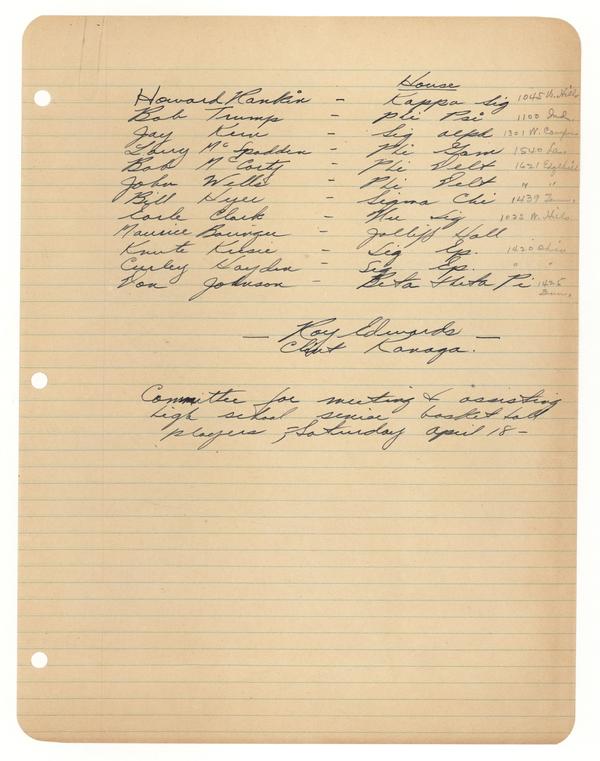 House
Howard Rankin - Kappa Sig 1045 W. Hills
Bob Trump - Phi Psi 1100 Ind.
Jay Kern - Sig alph 1301 W. Campus
Larry McSpadden - Phi Gam 1540 La.
Bob McCarty - Phi Delt 1621 Edgehill
John Wells - Phi Delt " "
Bill Hyer - Sigma Chi 1439 Tenn.
Earle Clark - Mu Sig 1023 W. Hills
Maurice - Jolliff Hall
Knute - Sig Ep. 1420 Ohio
Curley Hayden - Sig Ep. " "
Don Johnson - Beta Theta Pi 1425 Tenn.
- Roy Edwards -
Clint Kanaga.
Committee for meeting & assisting
high school senior basket ball
players - Saturday april 18 -